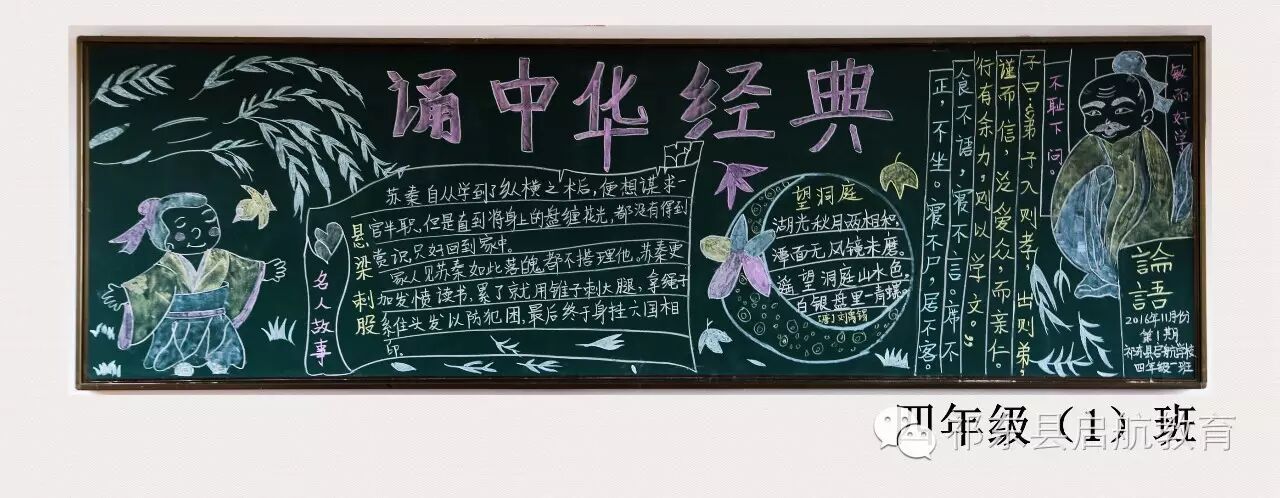 诵中华经典
名人故事
悬梁刺股
苏秦自从学到了纵横之术后，便想谋求一
官半职，但是直到将身上的盘缠花光，都没有得到
赏识，只好回到家中。
家人见苏秦如此落魄，都不搭理他。苏秦更
加发愤读书，累了就用锥子刺大腿，拿绳子
系住头发以防犯困，最后终于身挂六国相
印。
望洞庭
湖光秋月两相和，
潭面无风镜未磨。
遥望洞庭山水色，
白银盘里一青螺。
(唐)刘禹锡
敏而好学
不耻下问。
子曰：弟子入则孝，出则弟，
谨而信，泛爱众，而亲仁。
行有余力，则以学文。
食不语，寝不言。席不
正，不坐。寝不尸，居不客。
論語
2016年11月份
第1期
祁东县启航学校
四年级一班
四年级（1）班
祁东县启航教育